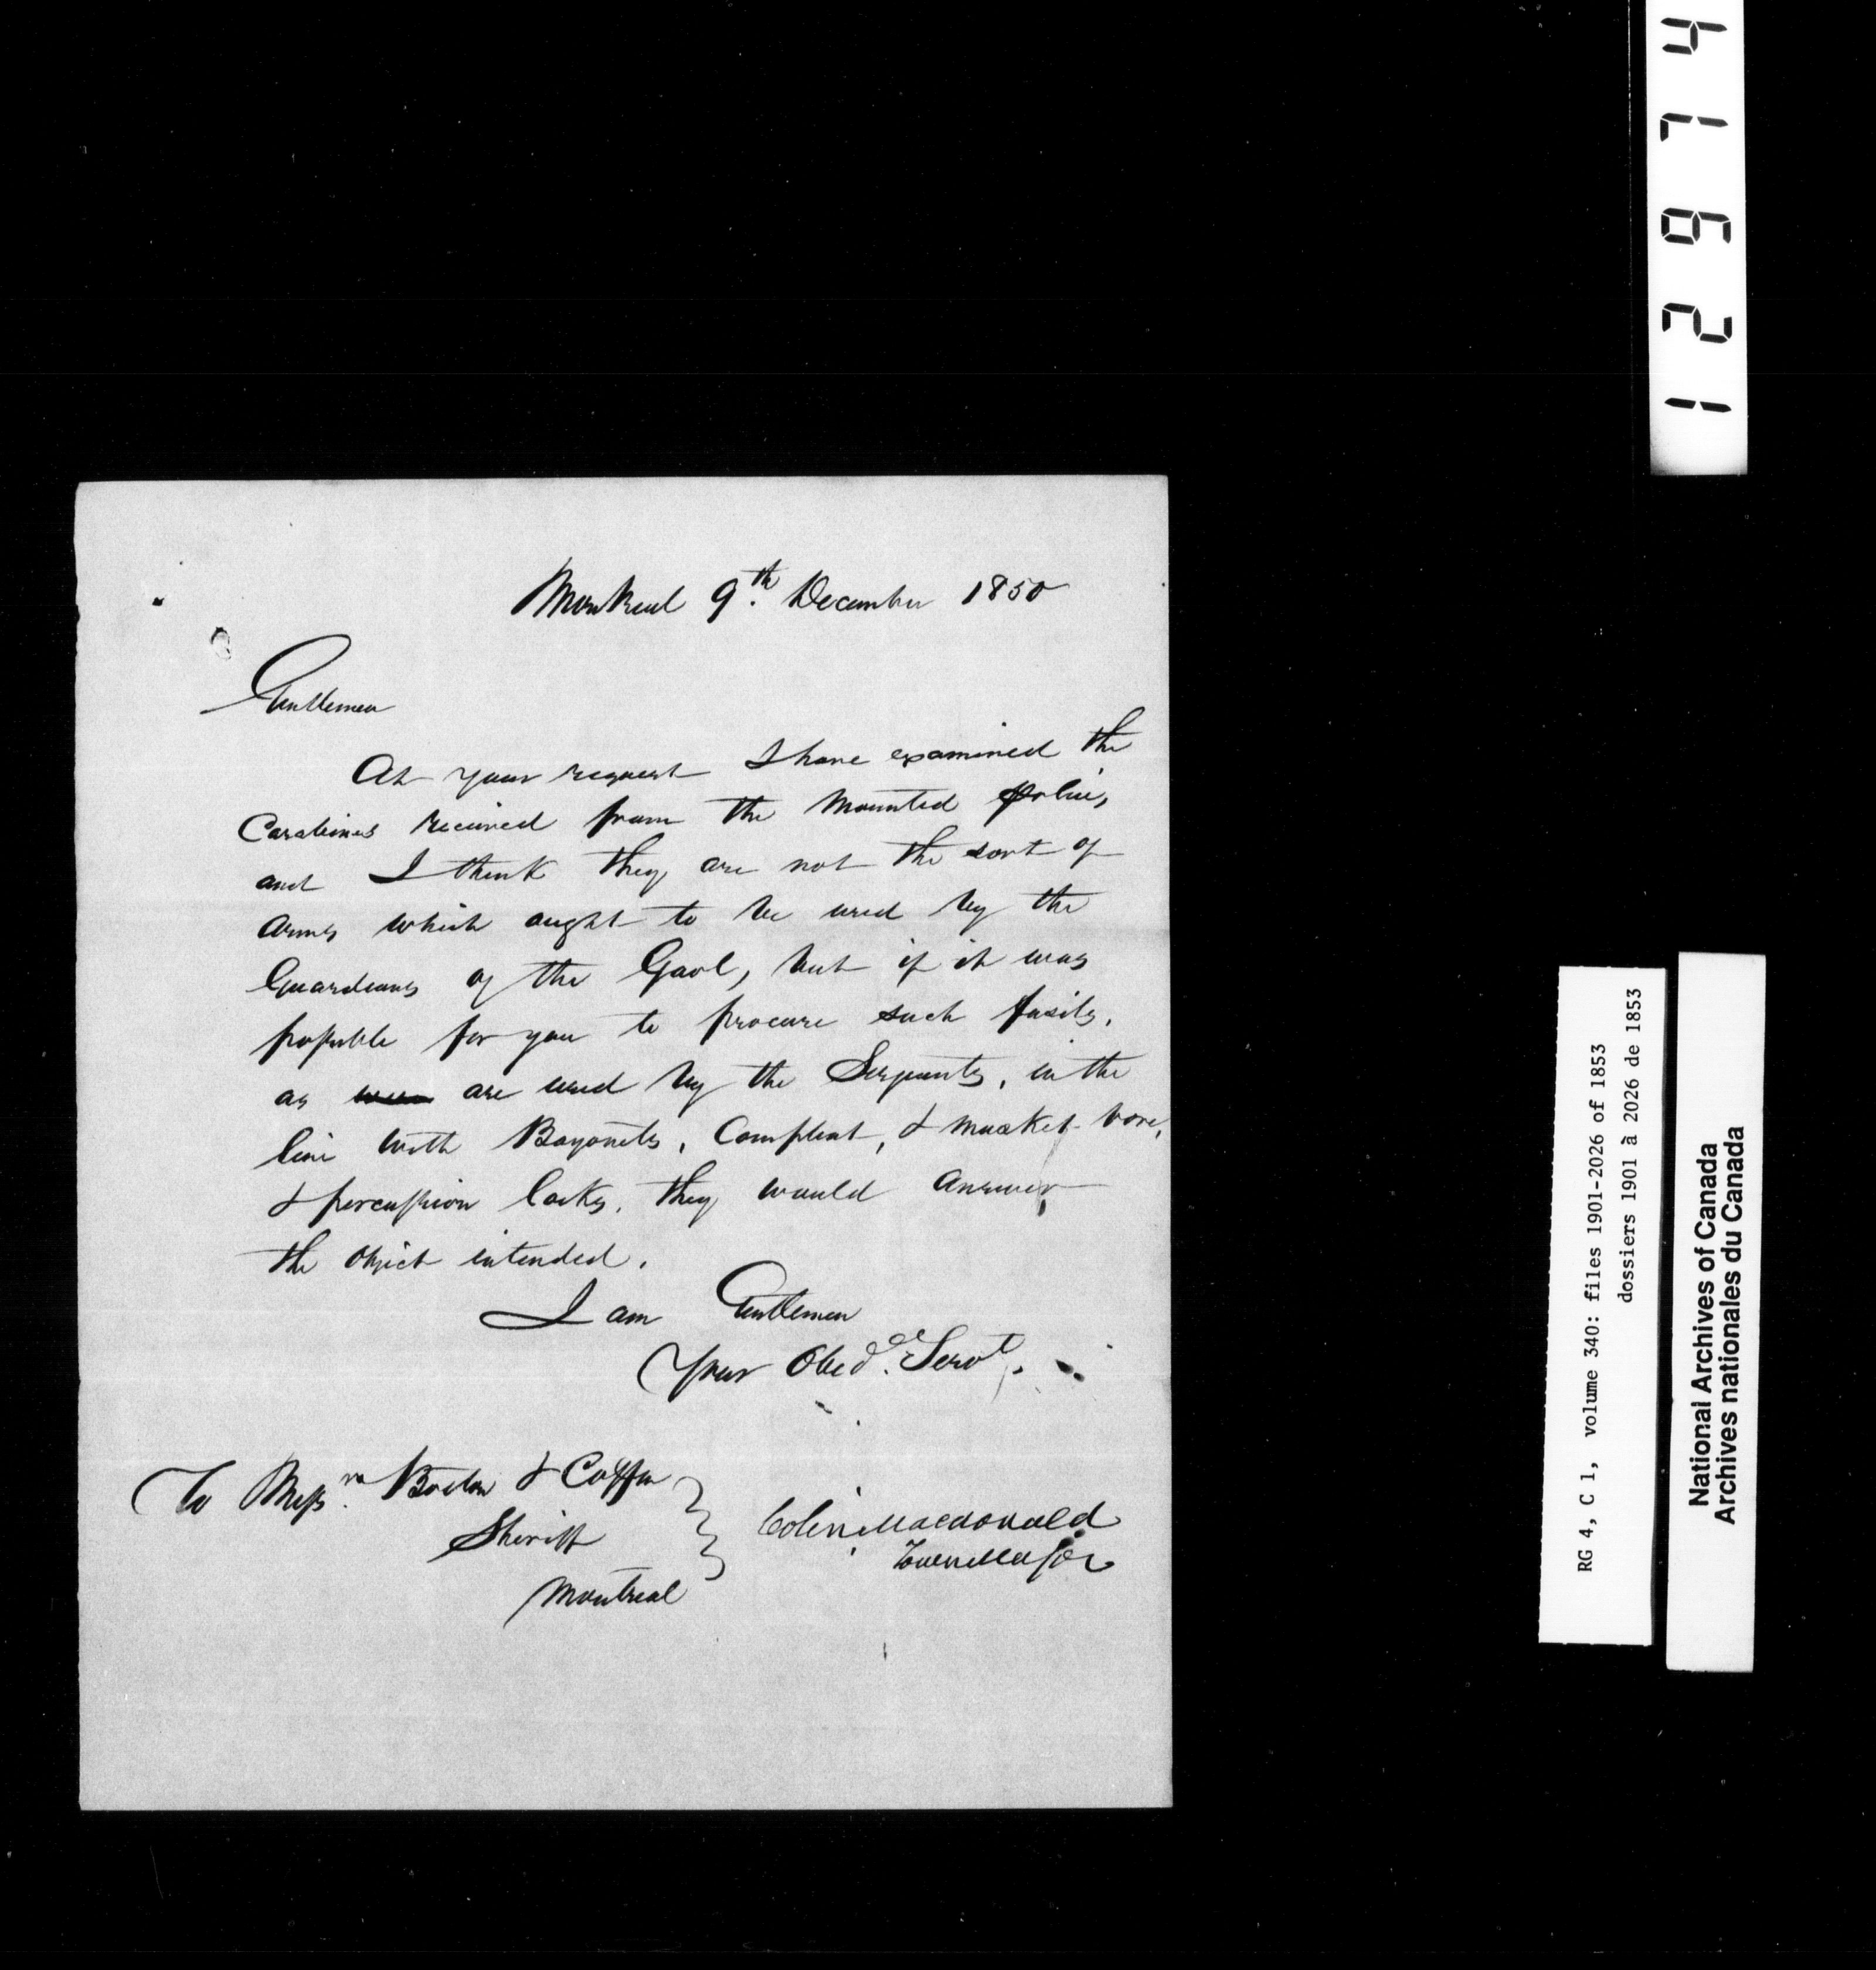 Montreal 9th. December 1850
Gentlemen
At your request I have examined the
Carabines received from the Mounted police,
and I think they are not the sort of
arms which ought to be used by the
Guardians of the Gaol, but if it was
possible for you to procure such fusils,
as were are used by the Serjeants, in the
line with Bayonets, Compleat, & musket bore,
& percussion locks, they would answer
the object intended.
I am Gentlemen
Your Obed. Servt.
To Messrs. Boston & Coffin
Sheriff
Montreal
Colin Macdonald
Town Major
12674
RG 4, C 1, volume 340: files 1901-2026 of 1853
dossiers 1901 à 2026 de 1853
National Archives of Canada
Archives nationales du Canada